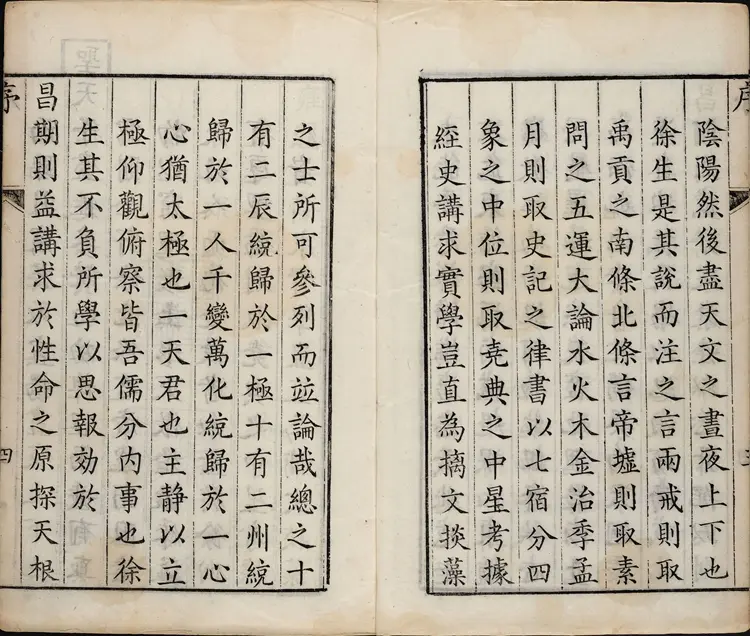 陰陽然後盡天文之晝夜上下也
徐生是其說而注之言兩戒則取
禹貢之南條北條言帝墟則取素
問之五運大論水火木金治季孟
月則取史記之律書以七宿分四
象之中位則取堯典之中星考據
經史講求實學豈直為摛文掞藻
之士所可參列而竝論哉總之十
有二辰統歸於一極十有二州統
歸於一人千變萬化統歸於一心
心猶太極也一天君也主静以立
極仰觀俯察皆吾儒分內事也徐
生其不負所學以思報効於
昌期則益講求於性命之原探天根
序
四